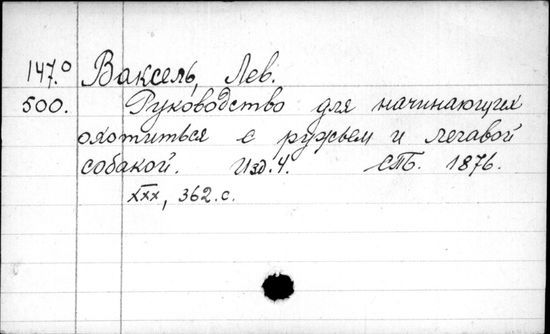 147.0 Ваксель, Лев.
500. Руководство для начинающих
охотиться с ружьем и легавой
собакой. Изд. 4. СПб. 1876.
XXX, 362 с.